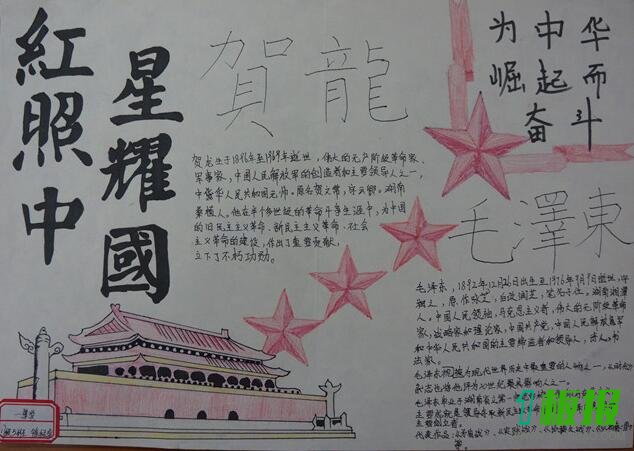 紅星照耀中國
賀龍
贺龙生于1896年至1969年逝世，伟大的无产阶级革命家、
军事家，中国人民解放军的创造者和主要领导人之一，
中华人民共和国元帅。原名贺文常，字云卿。湖南
桑植人。他在半个多世纪的革命斗争生涯中，为中国
的旧民主主义革命、新民主主义革命、社会
主义革命的建设，作出了重要贡献，
立下了不朽功勋。
为中华
崛起而
奋斗
毛澤東
毛泽东，1892年12月26日出生至1976年9月9日逝世，字
润之，原作咏芝，后改润芝，笔名子任。湖南湘潭
人。中国人民领袖，马克思主义者，伟大的无产阶级革命
家，战略家和理论家，中国共产党，中国人民解放军
和中华人民共和国的主要缔造者和领导人，诗人，书
法家。
毛泽东被视为现代世界历史中最重要的人物之一，
杂志也将他评为20世纪最具影响人之一。
毛泽东毕业于湖南省
主要成就是领导
主要创立者。
代表作品：
等。
一等奖
板报